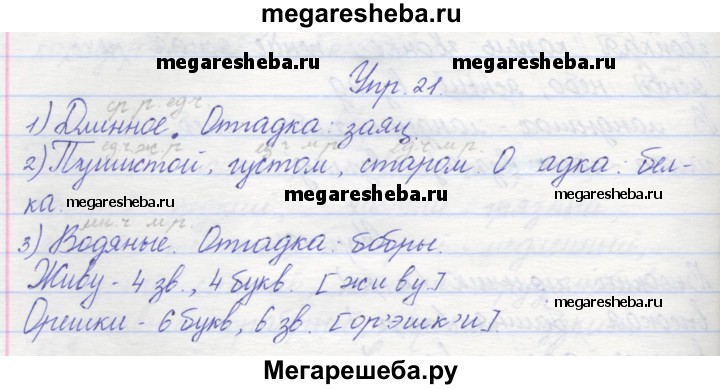 megaresheba.ru
megaresheba.ru megaresheba.ru
Упр. 21.
ср. р. ед. ч
1) Длинное. Отгадка: заяц.
ед. ч ж. р ед. ч м. р ед. ч м. р.
2) Пушистой, густом, старом. О адка: бел-
ка. megaresheba.ru megaresheba.ru megaresheba.ru
мн. ч м. р.
3) Водяные. Отгадка: бобры.
Живу - 4 зв., 4 букв. [живу]
Орешки - 6 букв, 6 зв. [ор'эшк'и].
Мегарешеба.ру